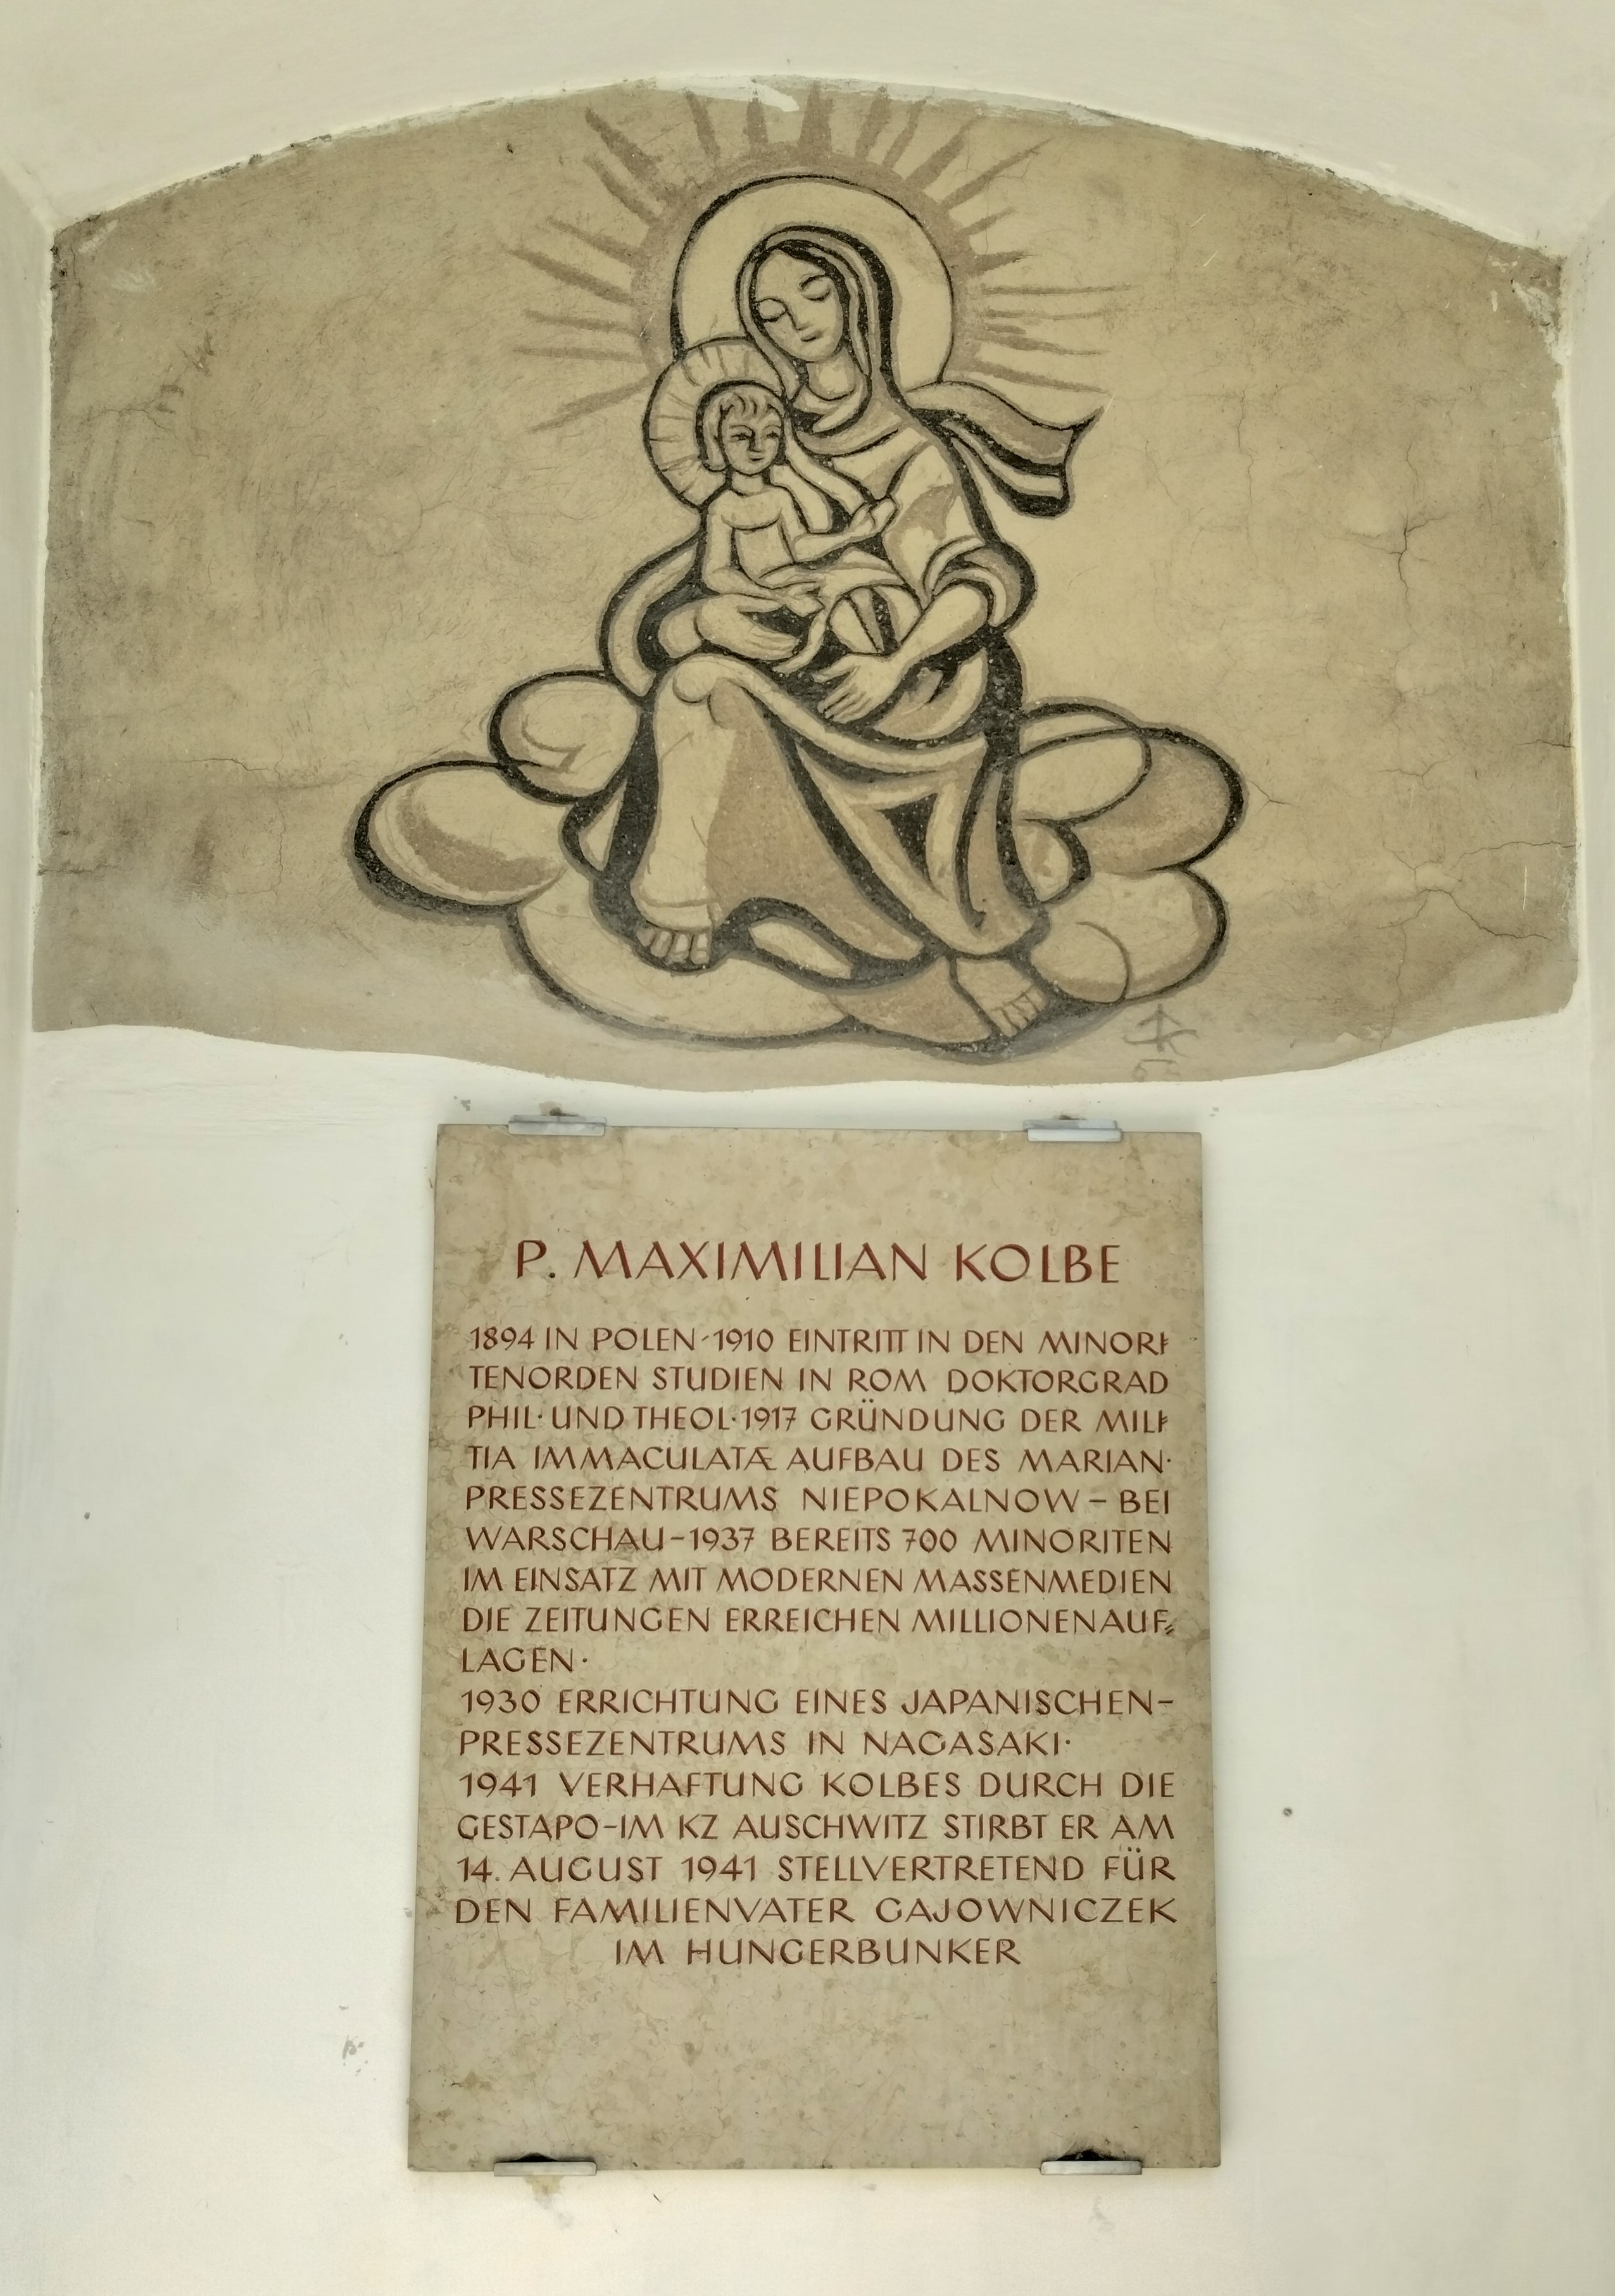 P. MAXIMILIAN KOLBE
1894 IN POLEN-1910 EINTRITT IN DEN MINORI-
TENORDEN STUDIEN IN ROM DOKTORGRAD
PHIL· UND THEOL·1917 GRÜNDUNG DER MILI-
TIA IMMACULATÆ AUFBAU DES MARIAN·
PRESSEZENTRUMS NIEPOKALNOW – BEI
WARSCHAU-1937 BEREITS 700 MINORITEN
IM EINSATZ MIT MODERNEN MASSENMEDIEN
DIE ZEITUNGEN ERREICHEN MILLIONENAUF=
LAGEN·
1930 ERRICHTUNG EINES JAPANISCHEN-
PRESSEZENTRUMS IN NAGASAKI·
1941 VERHAFTUNG KOLBES DURCH DIE
GESTAPO-IM KZ AUSCHWITZ STIRBT ER AM
14. AUGUST 1941 STELLVERTRETEND FÜR
DEN FAMILIENVATER GAJOWNICZEK
IM HUNGERBUNKER